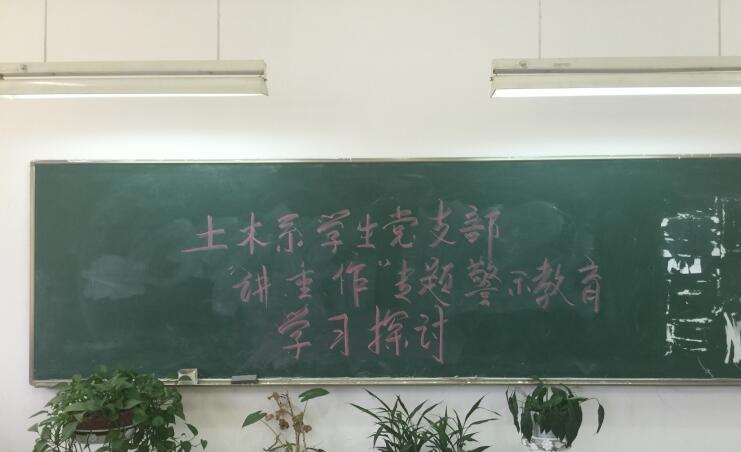 土木系学生党支部
“讲重作”专题警示教育
学习探讨